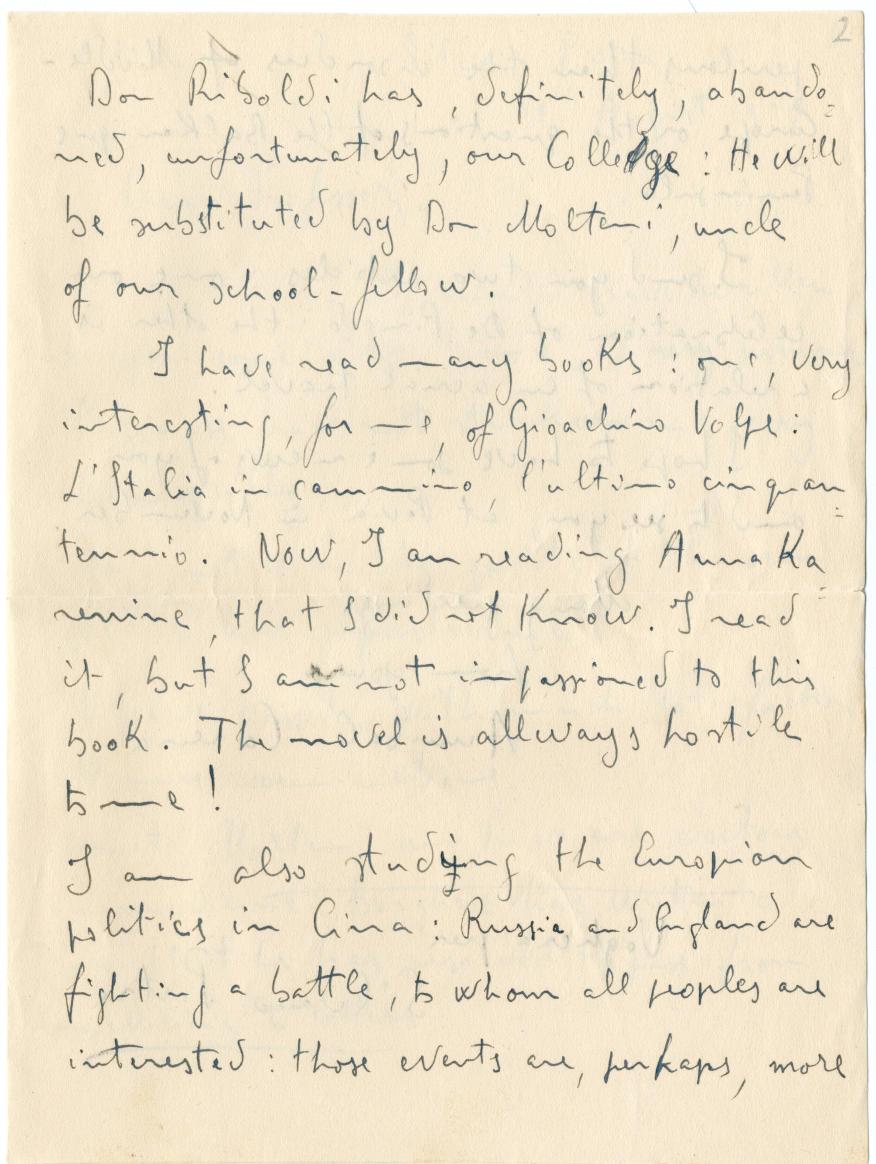 2
Don Riboldi has, definitely, abando=
ned, unfortunately, our Colledge : He will
be substituted by Don Molteni, uncle
of our school-fellow.
I have read many books : one, very
interesting, for me, of Gioachino Volpe :
L'Italia in cammino, l'ultimo cinquan=
tennio. Now, I am reading Anna Ka=
renine, that I did not Know. I read
it, but I am not impassioned to this
book. The novel is allways hostile
to me!
I am also studying the Europian
politics in Cina : Russia and England are
fighting a battle, to whom all peoples are
interested : those events are, perhaps, more